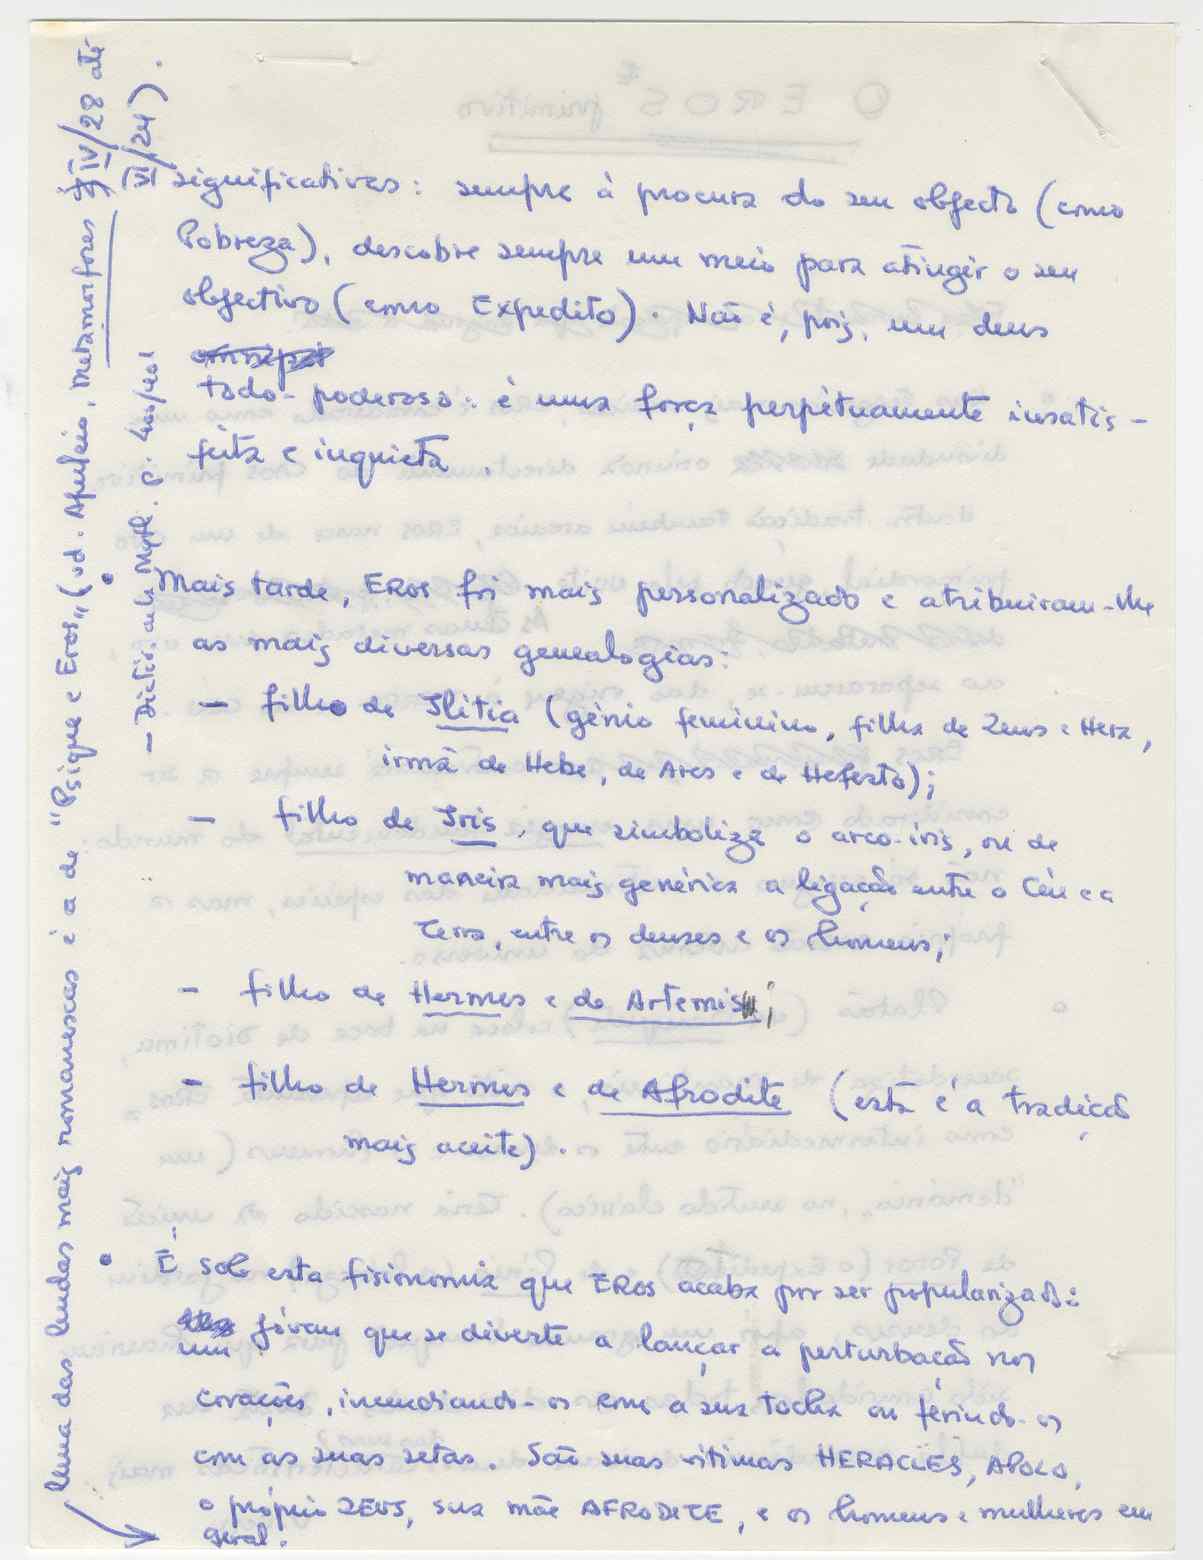 significativas: sempre à procura do seu objecto (como
Pobreza), descobre sempre um meio para atingir o seu
objectivo (como Expedito). Não é, pois, um deus
todo-poderoso: é uma força perpètuamente insatis-
feita e inquieta.
• Mais tarde, EROS foi mais personalizado e atribuiram-lhe
as mais diversas genealogias:
— filho de Ilitia (génio feminino, filha de Zeus e Hera,
irmã de Hebe, de Ares e de Hefesto);
— filho de Iris, que simboliza o arco-iris, ou de
maneira mais genérica a ligação entre o Céu e a
Terra, entre os deuses e os homens;
- filho de Hermes e de Artemis;
- filho de Hermes e de Afrodite (esta é a tradição
mais aceite).
• É sob esta fisionomia que EROS acaba por ser popularizado:
um jóvem que se diverte a lançar a perturbação nos
corações, incendiando-os com a sua tocha ou ferindo-os
com as suas setas. São suas vitimas HERACLES, APOLO,
o próprio ZEUS, sua mãe AFRODITE, e os homens e mulheres em
geral.
Uma das lendas mais romanescas é a de "Psique e Eros" (vd. Apuleio, Metamorfoses IV/28 até
VI/24).
— Diction. de la Myth. p. 400/401